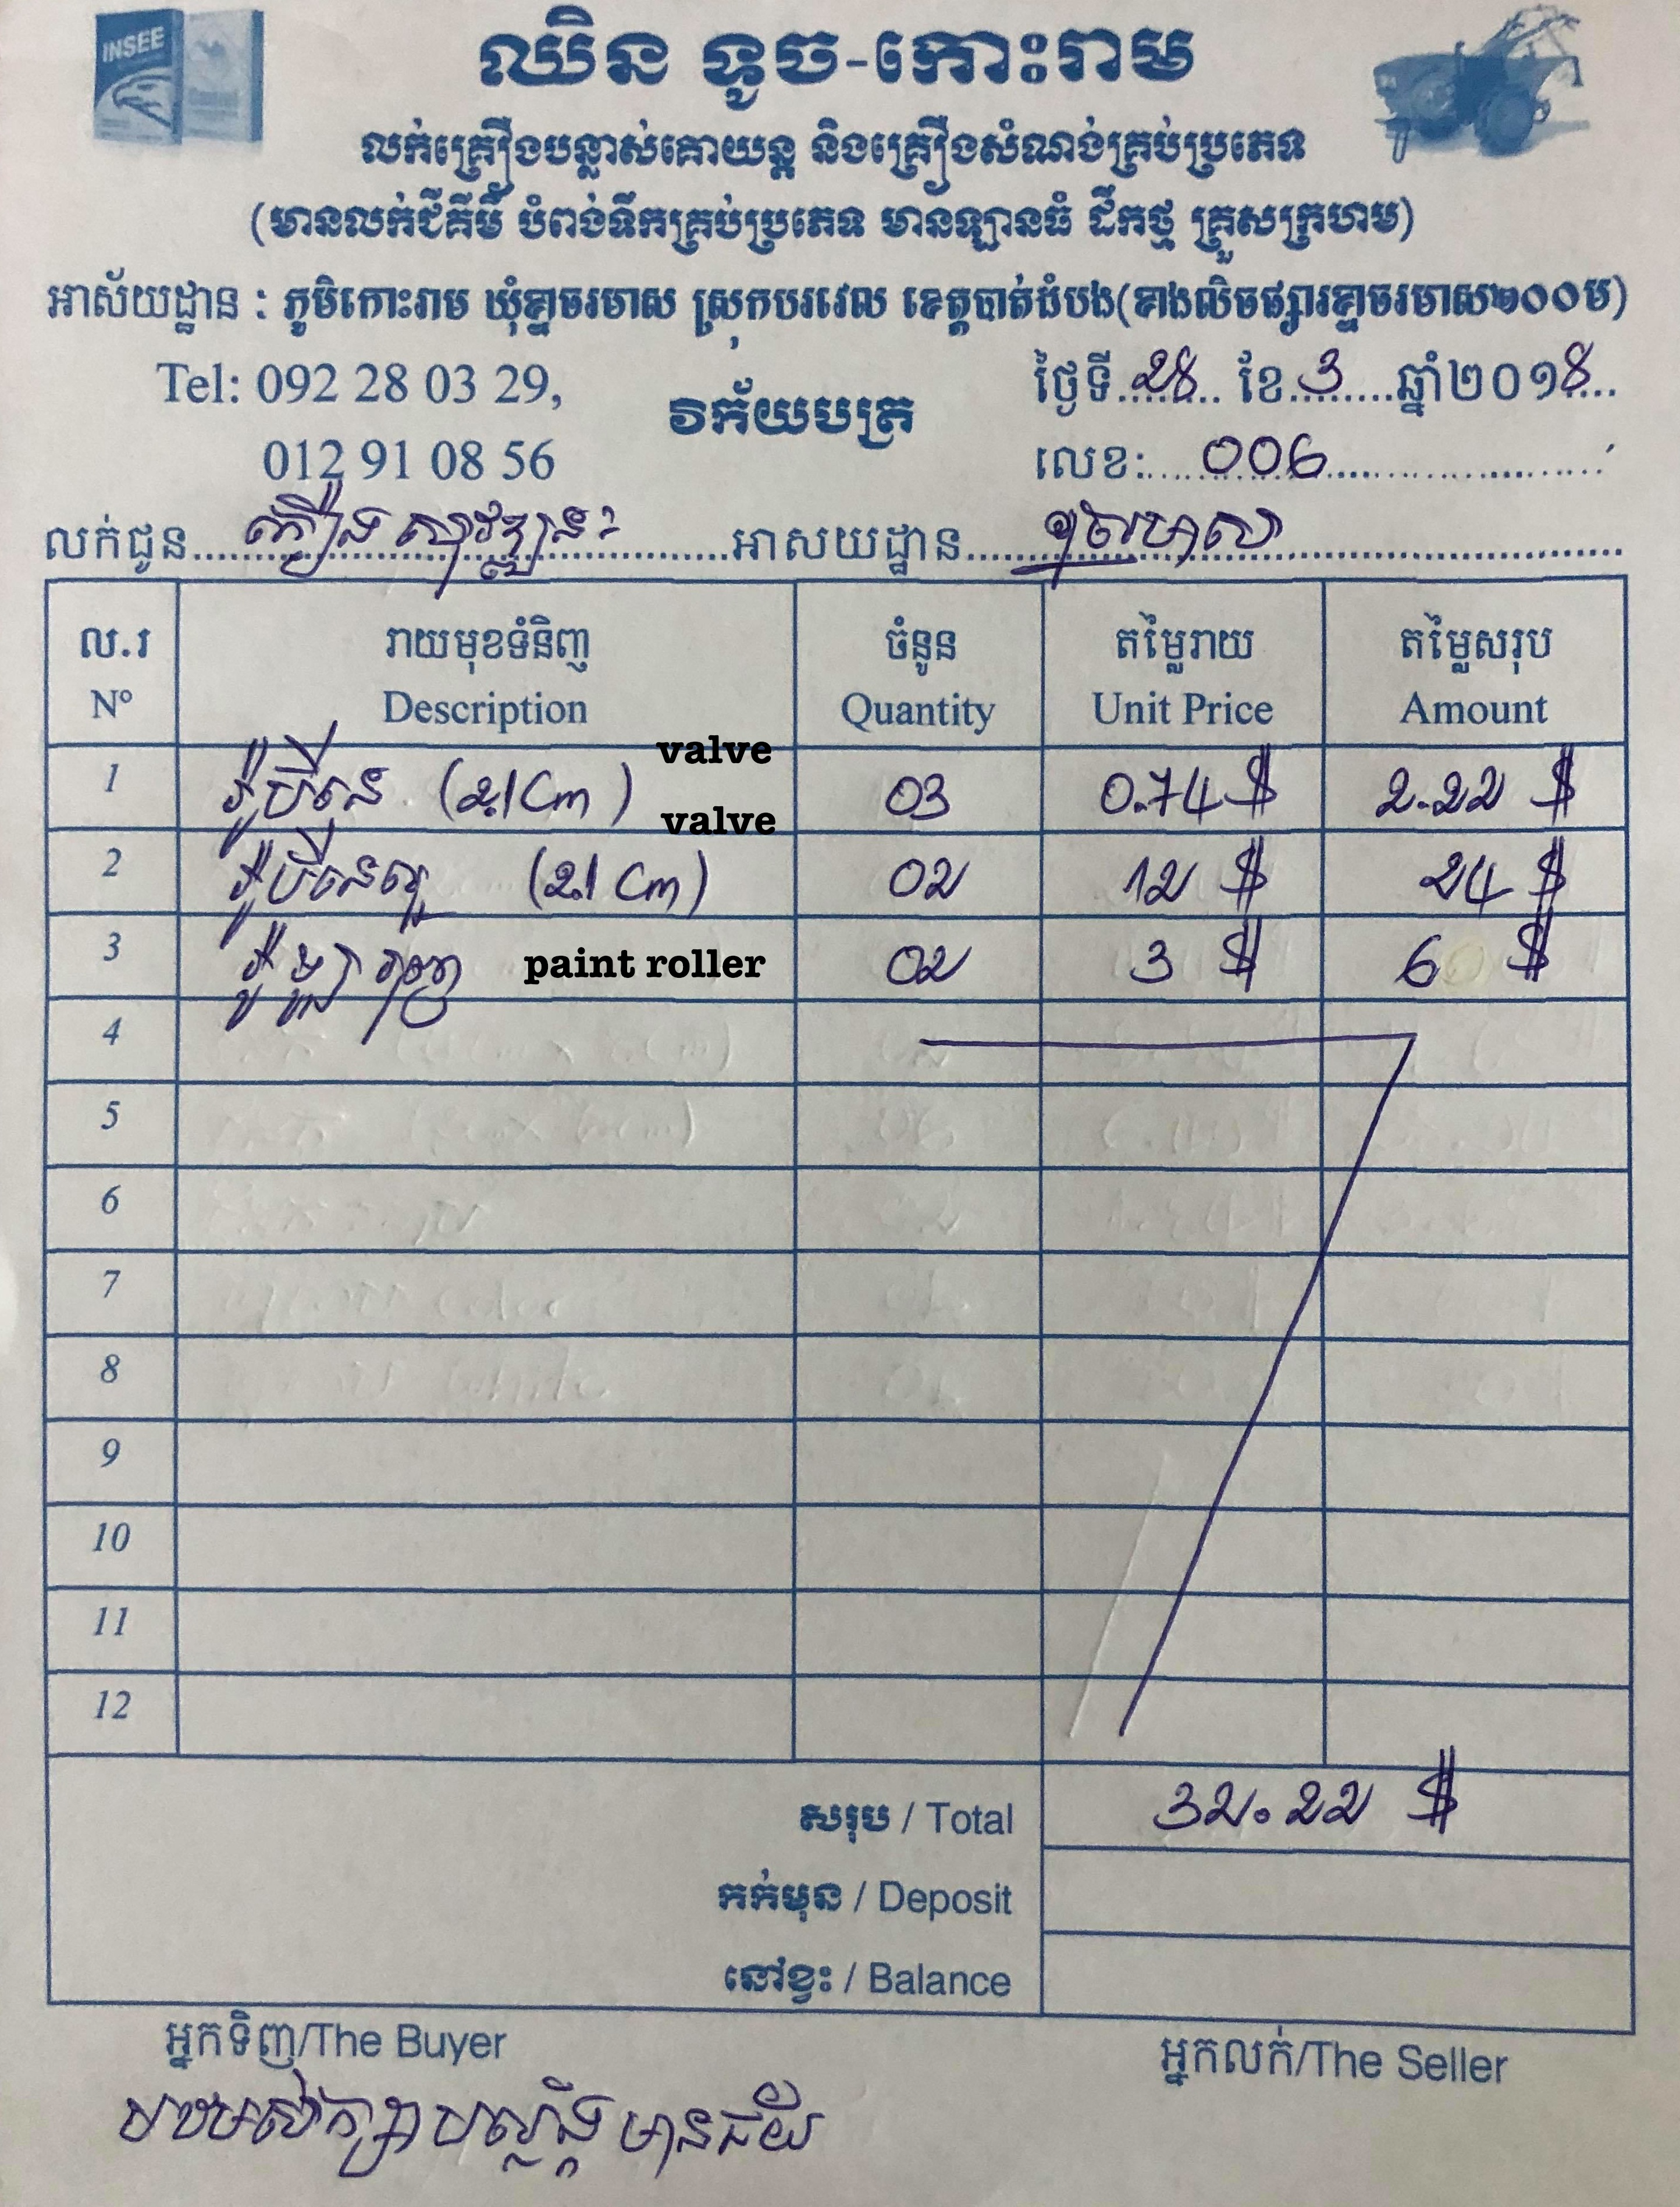 INSEE
ឈិន ទូច-កោះរាម
លក់គ្រឿងបន្លាស់គោយន្ត និងគ្រឿងសំណង់គ្រប់ប្រភេទ
(មានលក់ជីគីមី បំពង់ទឹកគ្រប់ប្រភេទ មានឡានធំ ដឹកថ្ម គ្រួសក្រហម)
អាស័យដ្ឋាន : ភូមិកោះរាម ឃុំខ្នាចរមាស ស្រុកបរវេល ខេត្តបាត់ដំបង(ខាងលិចផ្សារខ្នាចរមាស២០០ម)
Tel: 092 28 03 29,
012 91 08 56
វិក័យបត្រ
ថ្ងៃទី 28 ខែ 3 ឆ្នាំ២០១8
លេខ: 006
លក់ជូន អាសយដ្ឋាន
ល.រ រាយមុខទំនិញ ចំនួន តម្លៃរាយ តម្លៃសរុប
Nº Description Quantity Unit Price Amount
valve
1 រ៉ូប៊ីនេ (2.1Cm) 03 0.74 $ 2.22 $
valve
2 រ៉ូប៊ីនេ (2.1 Cm) 02 12 $ 24 $
3 paint roller 02 3 $ 6 $
4
5
6
7
8
9
10
11
12
សរុប / Total 32.22 $
កក់មុន / Deposit
នៅខ្វះ / Balance
អ្នកទិញ/The Buyer
អ្នកលក់/The Seller
មានជ័យ